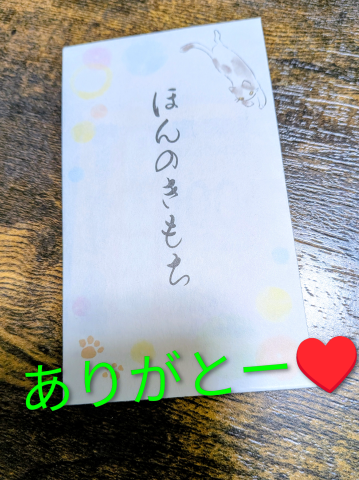 ほんのきもち
ありがとー❤️